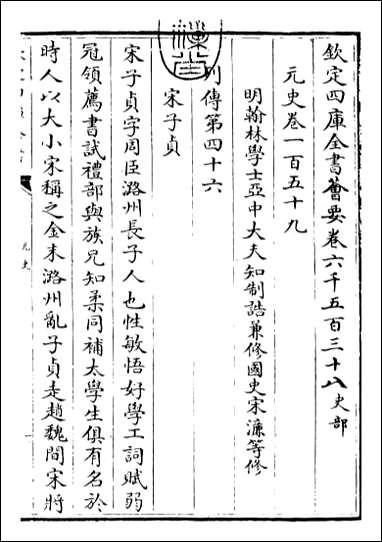 欽定四庫全書薈要卷六千五百三十八史部
元史卷一百五十九
明翰林學士亞中大夫知制誥兼修國史宋濂等修
列傳第四十六
宋子貞
宋子貞字周臣潞州長子人也性敏悟好學工詞賦弱
冠領薦書試禮部與族兄知柔同補太學生俱有名於
時人以大小宋稱之金末潞州亂子貞走趙魏間宋將
元史